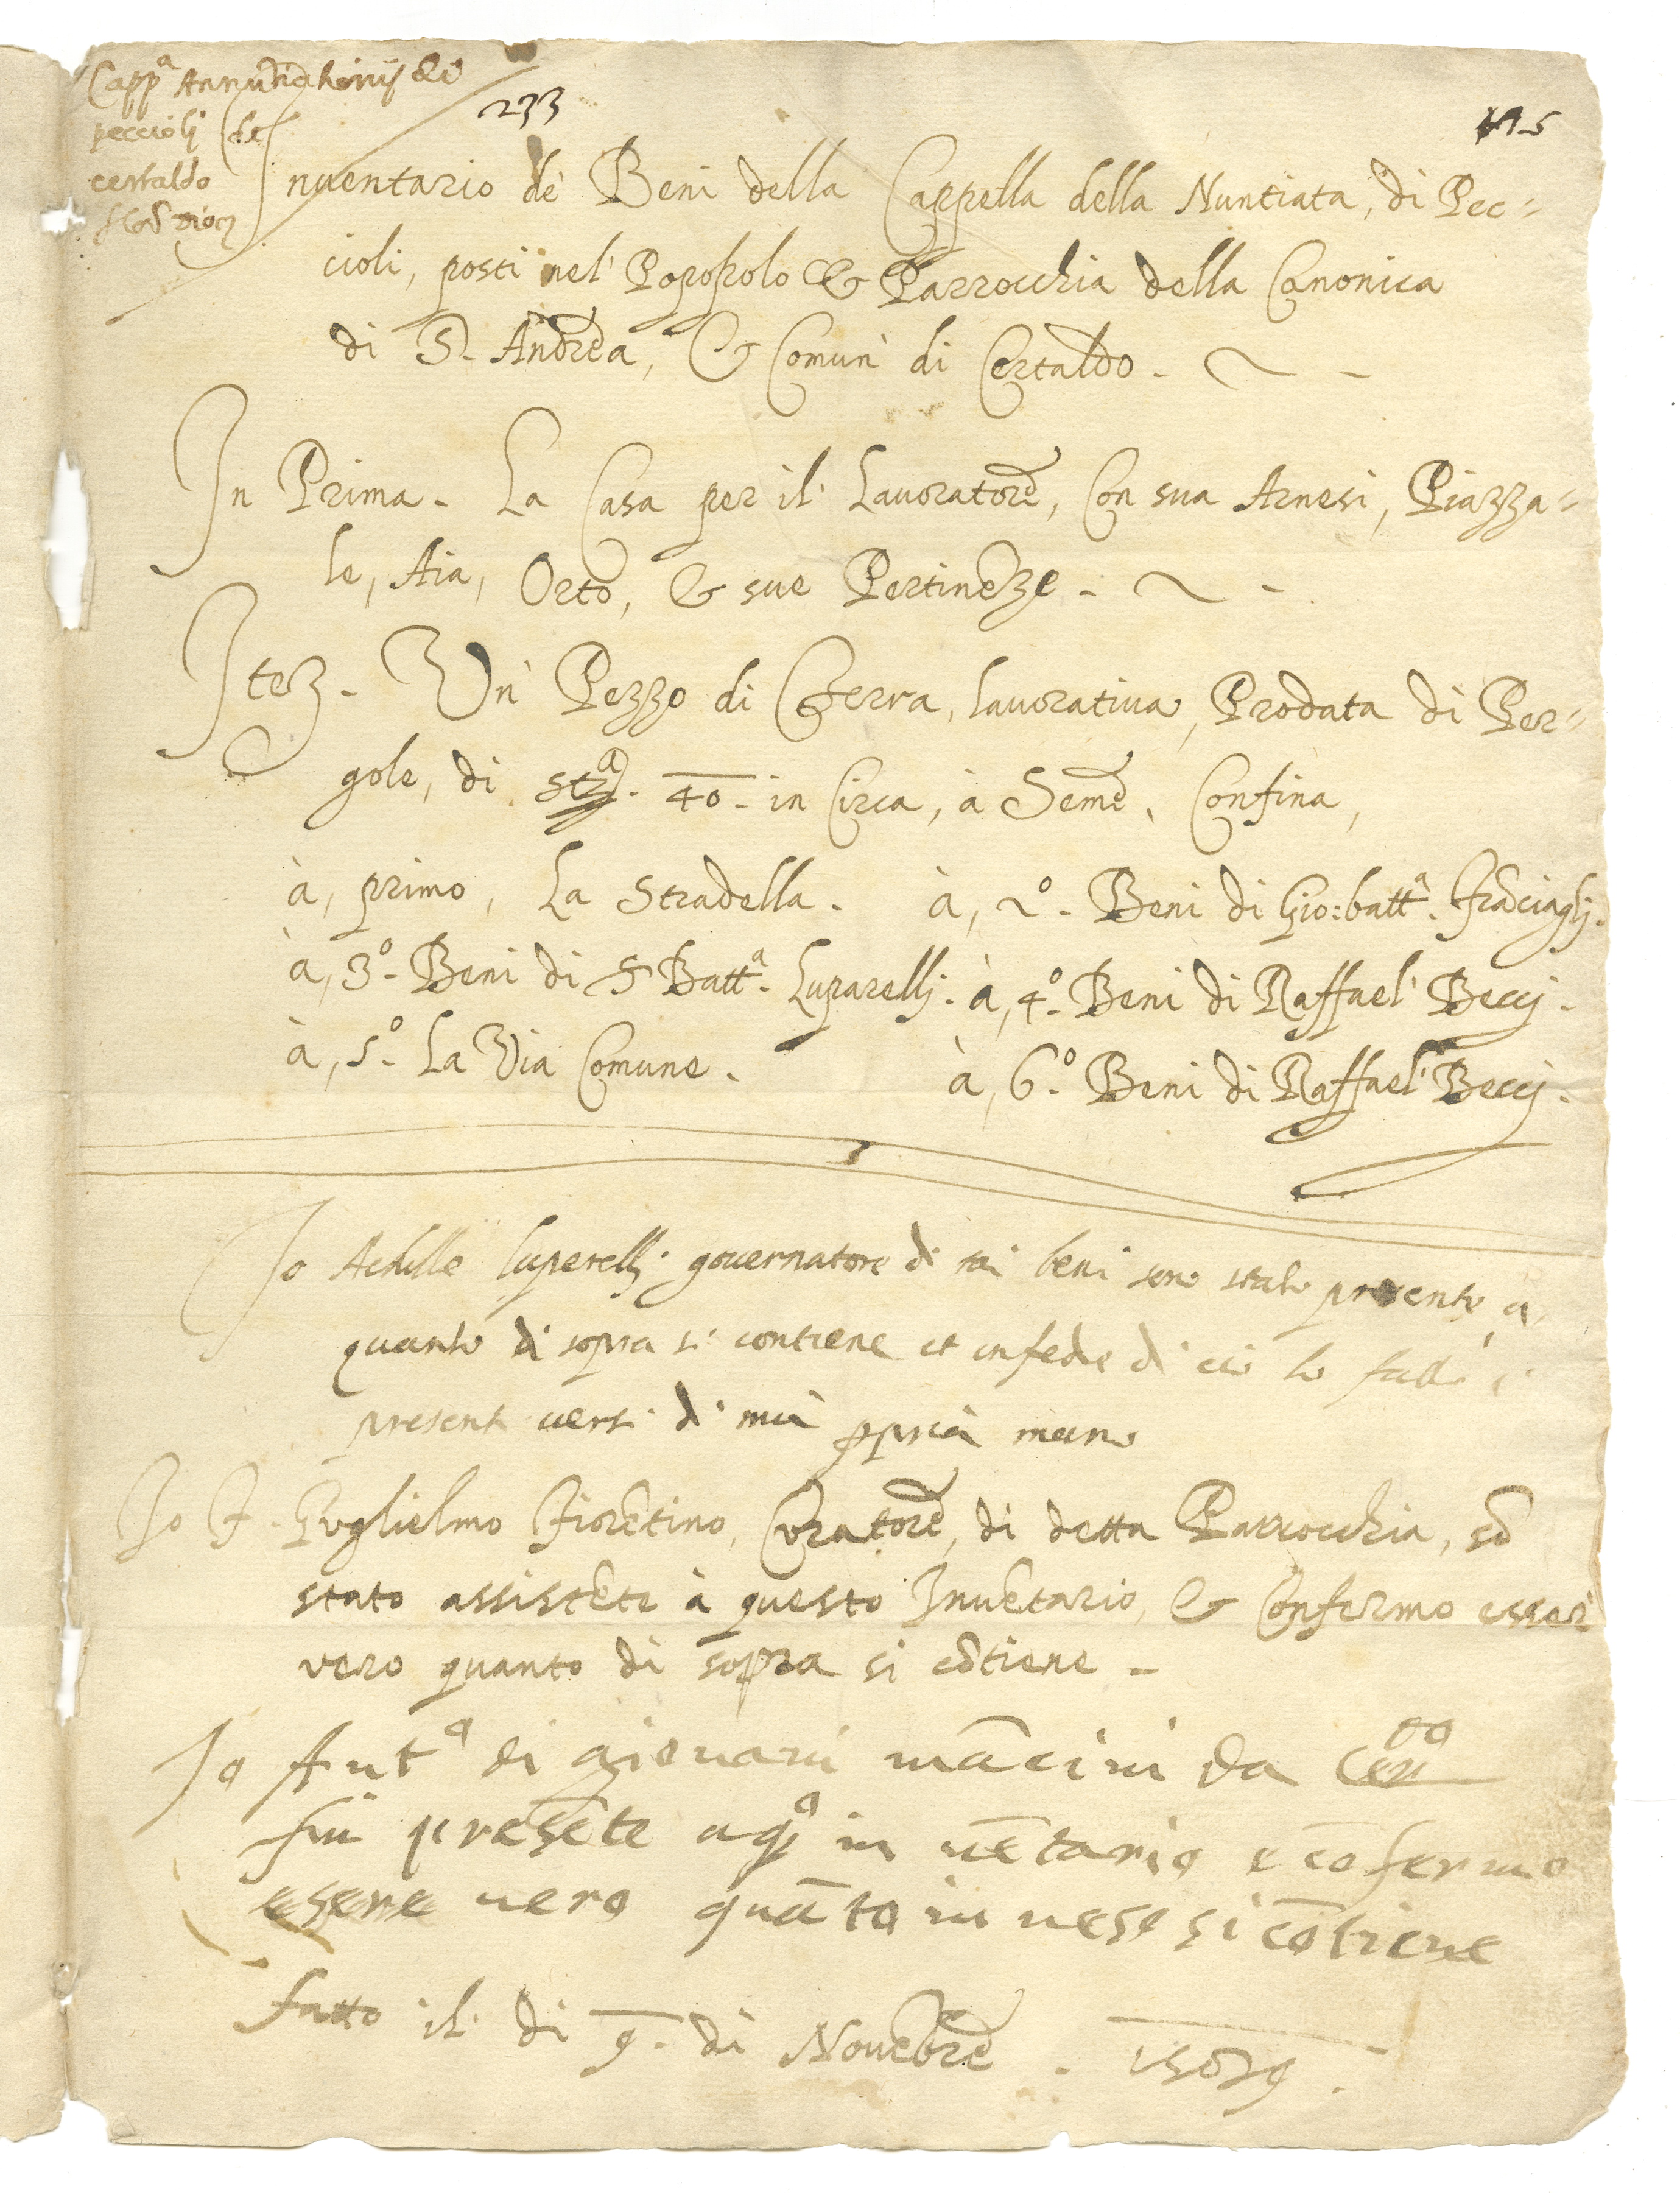 Capp.ª Annuntiationis de
peccioli de
certaldo
233
Inuentario de Beni della Cappella della Nuntiata, di Pec=
cioli, posti nel' Popopolo & Parrocchia della Canonica
di S. Andrea, & Comun' di Certaldo.
In Prima. La Casa per il' Lauoratore, Con sua Arnesi, Piazza=
le, Aia, Orto, & sue Pertinēze.
Itez. Un' Pezzo di Terra, lauoratiua, Prodata di Per=
gole, di st.ª 40. in Circa, à Seme, Confina,
à, primo, La Stradella. à, 2º. Beni di Gio: batt.ª
à, 3º. Beni di Batt.ª Luparellj. à, 4º. Beni di Raffael' Beccj.
à, 5º. La Via Comune. à, 6º. Beni di Raffael' Beccj.
Io Achille luperellj gouernatore di tai beni sono stato presente a
quanto di sopra si contiene et in fede di ciò ho fatto i
presenti uersi di mia ꝓpria mano
Io F. Guglielmo Fiorētino, Curatore, di detta Parrocchia, sō
stato assistēte à questo Inuētario, & Confermo esser'
vero quanto di sopra si cōtiene.
Io Ant.º di giouani mācini da Cer.do
fui presēte a q.º in uētario e cōfermo
esere uero quāto in neso si cōtiene
fatto il' di 9. di Nouēbre.